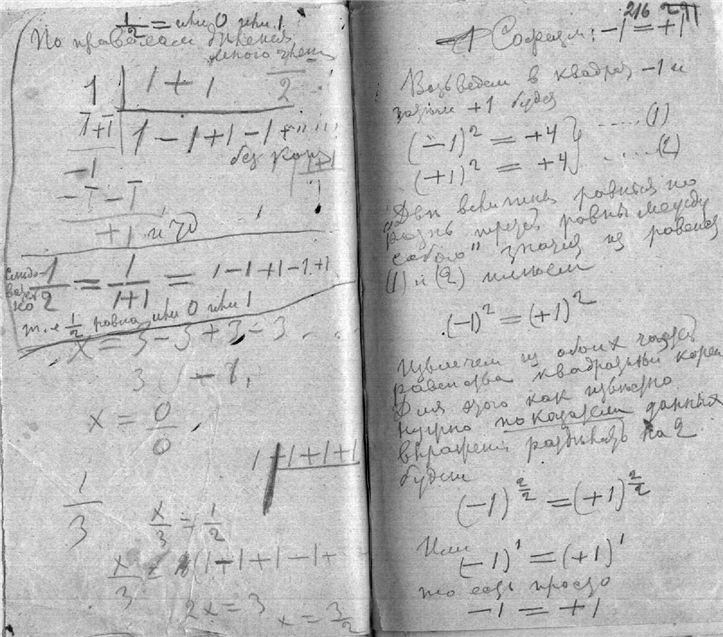 1/2 = или 0 или 1
По правилам деления
много член
1 | 1 + 1
2
1+1 | 1 - 1 + 1 - 1 +
без кон
-1
-1 - 1
+1 и т д
1/2 = 1/(1+1) = 1 - 1 + 1 - 1 + 1
т. е 1/2 равна или 0 или 1
x = 3 - 3 + 3 - 3 . .
3
x = 0/0
1 + 1 + 1 + 1
1/3
x/3 = 1/2
x/3 = (1 - 1 + 1 - 1 +
2x = 3 x = 3/2
216
Софизм: -1 = +1
Возведем в квадрат -1 и
затем +1 будем
(-1)² = +4 ..... (1)
(+1)² = +4 ..... (2)
"Две величины равныя по
рознь третей равны между
собою" значит из равенств
(1) и (2) имеем
(-1)² = (+1)²
Извлечем из обоих частей
равенства квадратный корен
Для этого как известно
нужно показатели данных
выражен разделить на 2
будем
(-1)^2/2 = (+1)^2/2
Или
(-1)¹ = (+1)¹
то есть просто
-1 = +1